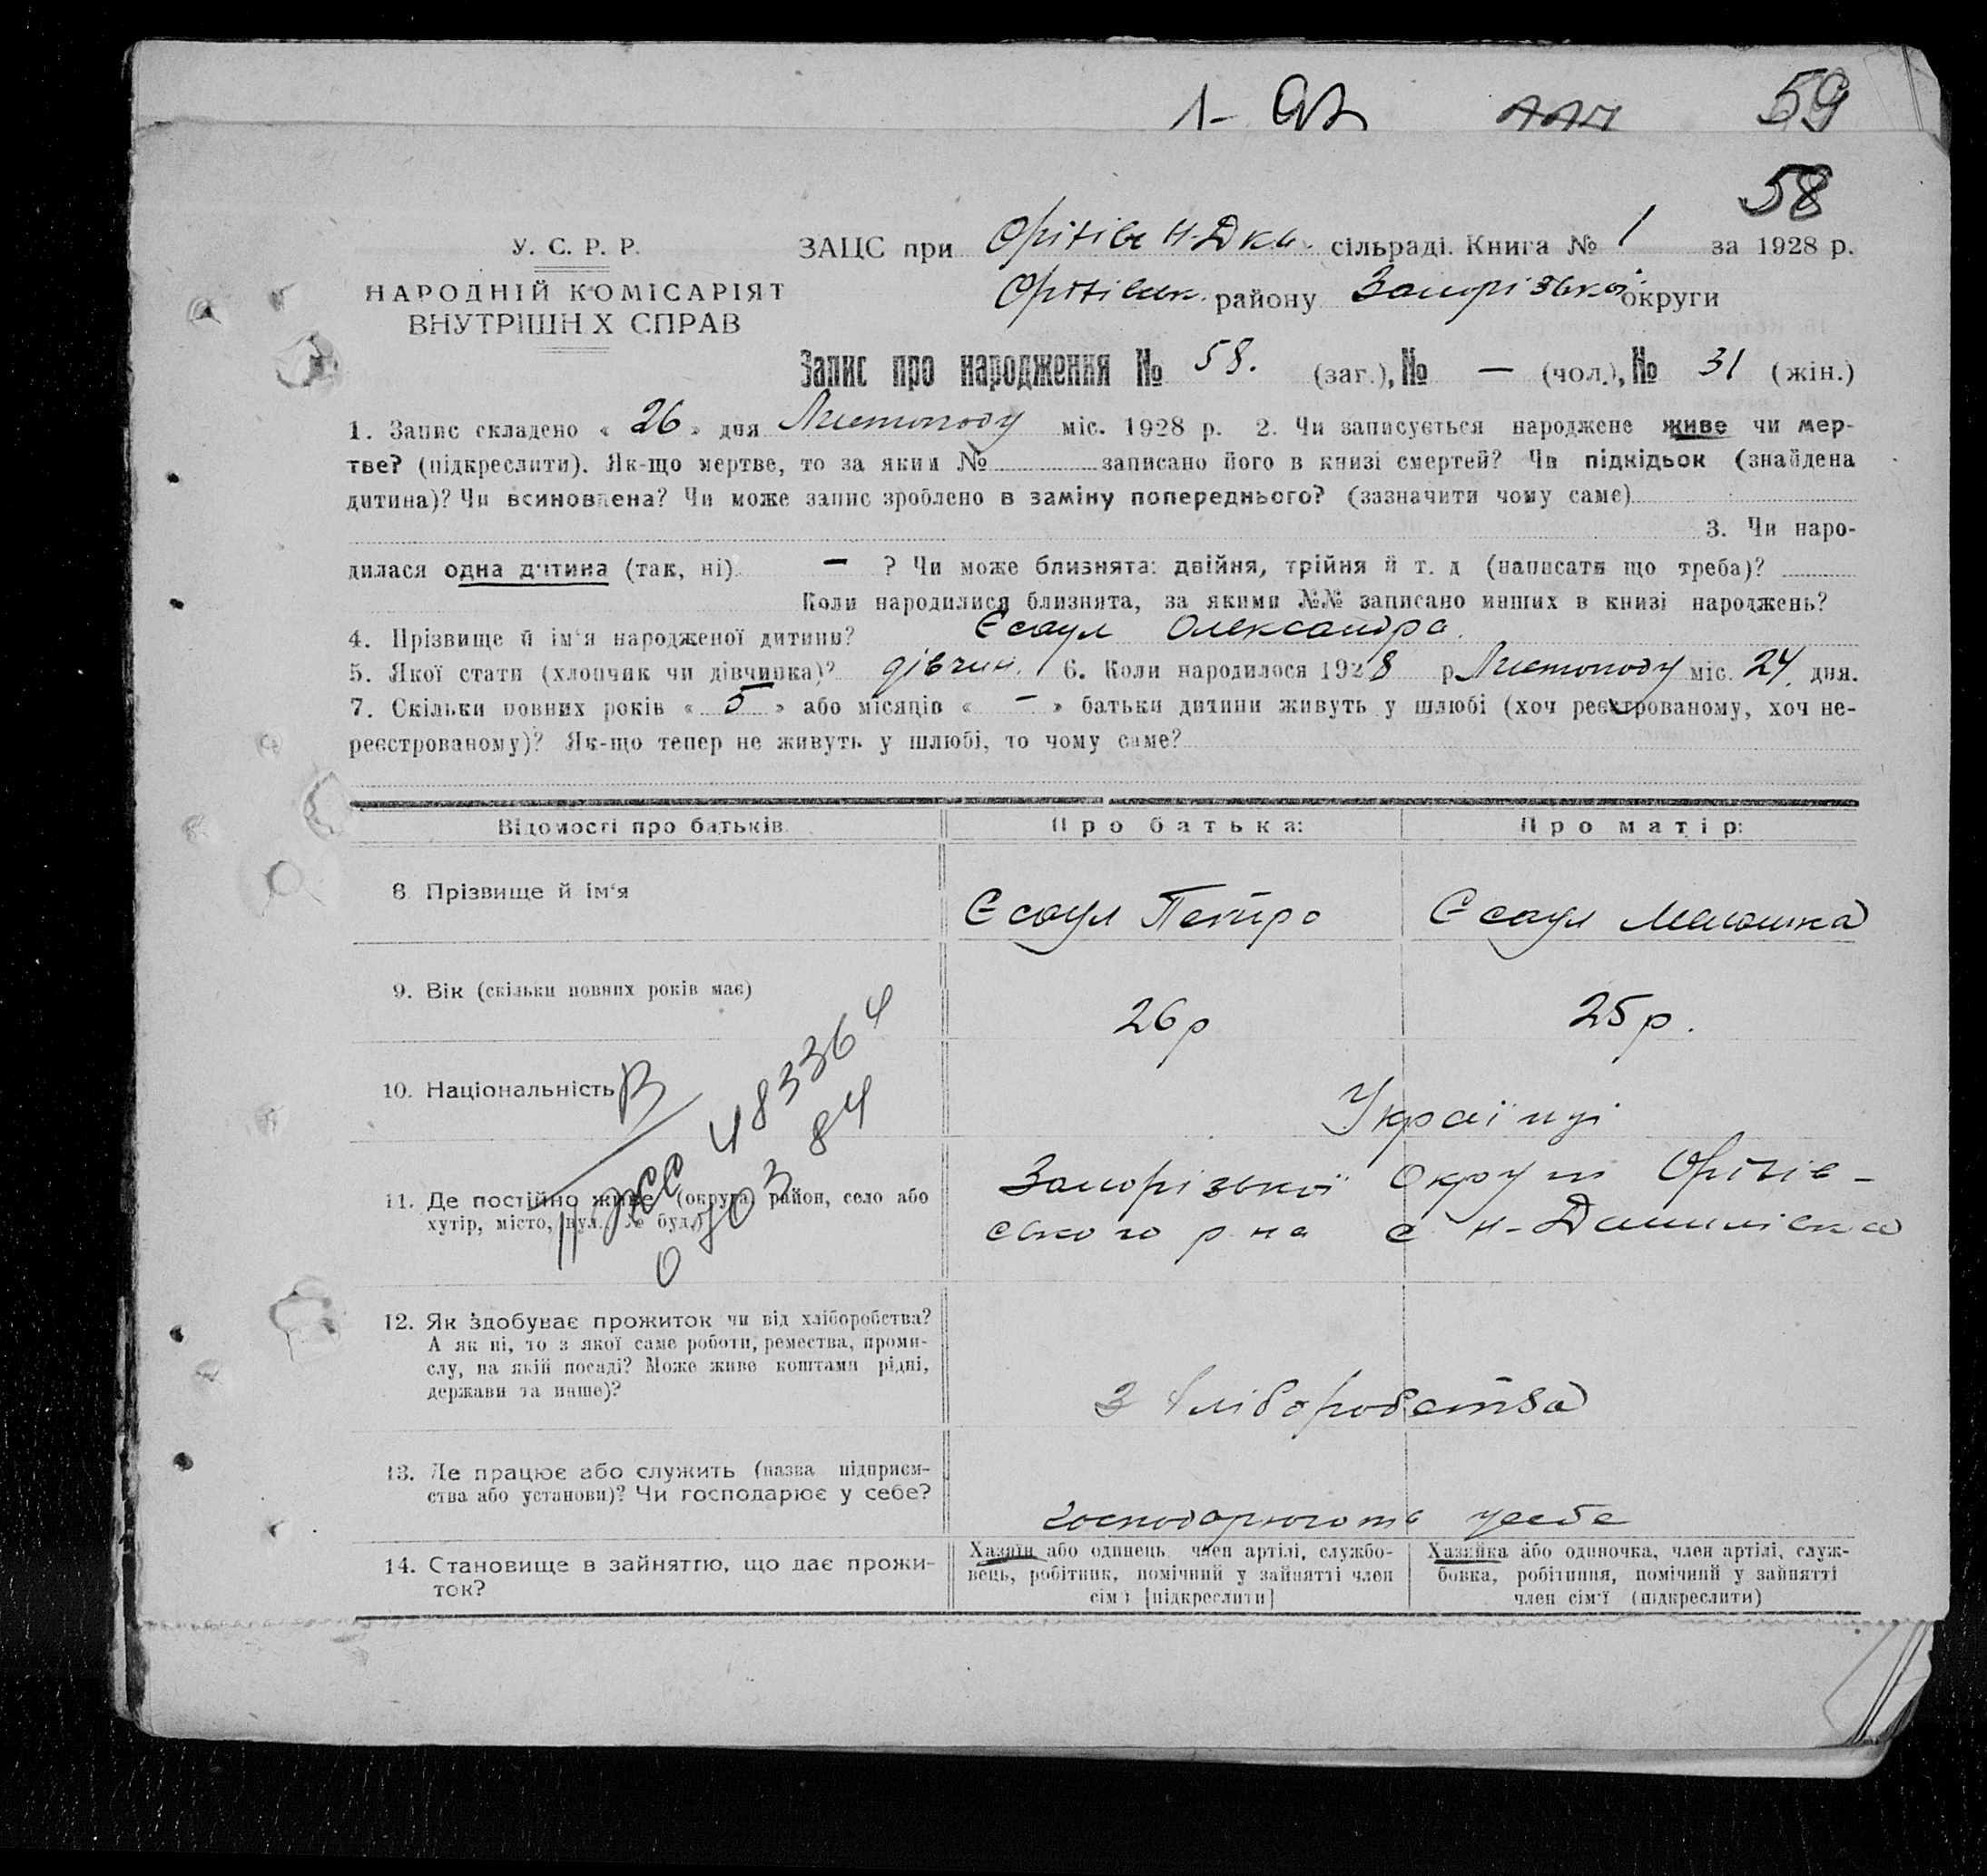 59
58
У. С. Р. Р.
НАРОДНІЙ КОМІСАРІЯТ
ВНУТРІШН Х СПРАВ
ЗАЦС при Оріхівс Н-Дка. сільраді. Книга № 1 за 1928 р.
Оріхівськ. району Запорізької округи
Запис про народження № 58. (заг.), № — (чол.), № 31 (жін.)
1. Запис складено « 26 » дня Листопаду міс. 1928 р. 2. Чи записується народжене живе чи мер-
тве? (підкреслити). Як-що мертве, то за яким № записано його в книзі смертей? Чи підкідьок (знайдена
дитина)? Чи всиновлена? Чи може запис зроблено в заміну попереднього? (зазначити чому саме)
3. Чи наро-
дилася одна дитина (так, ні) — ? Чи може близнята: двійня, трійня й т. д (написати що треба)?
Коли народилися близнята, за якими №№ записано инших в книзі народжень?
4. Прізвище й ім'я народженої дитини? Єсаул Олександра.
5. Якої стати (хлопчик чи дівчинка)? дівчин. 6. Коли народилося 1928 р Листопаду міс. 24. дня.
7. Скільки повних років « 5 » або місяців « – » батьки дитини живуть у шлюбі (хоч реєстрованому, хоч не-
реєстрованому)? Як-що тепер не живуть у шлюбі, то чому саме?
Відомості про батьків. Про батька: Про матір:
8. Прізвище й ім'я Єсаул Петро Єсаул
9. Вік (скільки повних років має) 26 р 25 р.
10. Національність Українці
11. Де постійно живе (округа, район, село або
хутір, місто, вул. № буд.)
Запорізької Округи Оріхів-
ського р-на с Н-Данилівка
483364
0 703 84
12. Як здобуває прожиток чи від хліборобства?
А як ні, то з якої саме роботи, ремества, проми-
слу, на якій посаді? Може живе коштами рідні,
держави та инше)?
З хліборобства
13. Де працює або служить (назва підприєм-
ства або установи)? Чи господарює у себе?
господарюють у себе
14. Становище в зайняттю, що дає прожи-
ток?
Хазяїн або одинець, член артілі, службо-
вець, робітник, помічний у зайнятті член
сім'ї [підкреслити]
Хазяйка або одиночка, член артілі, служ-
бовка, робітниця, помічний у зайнятті
член сім'ї (підкреслити)